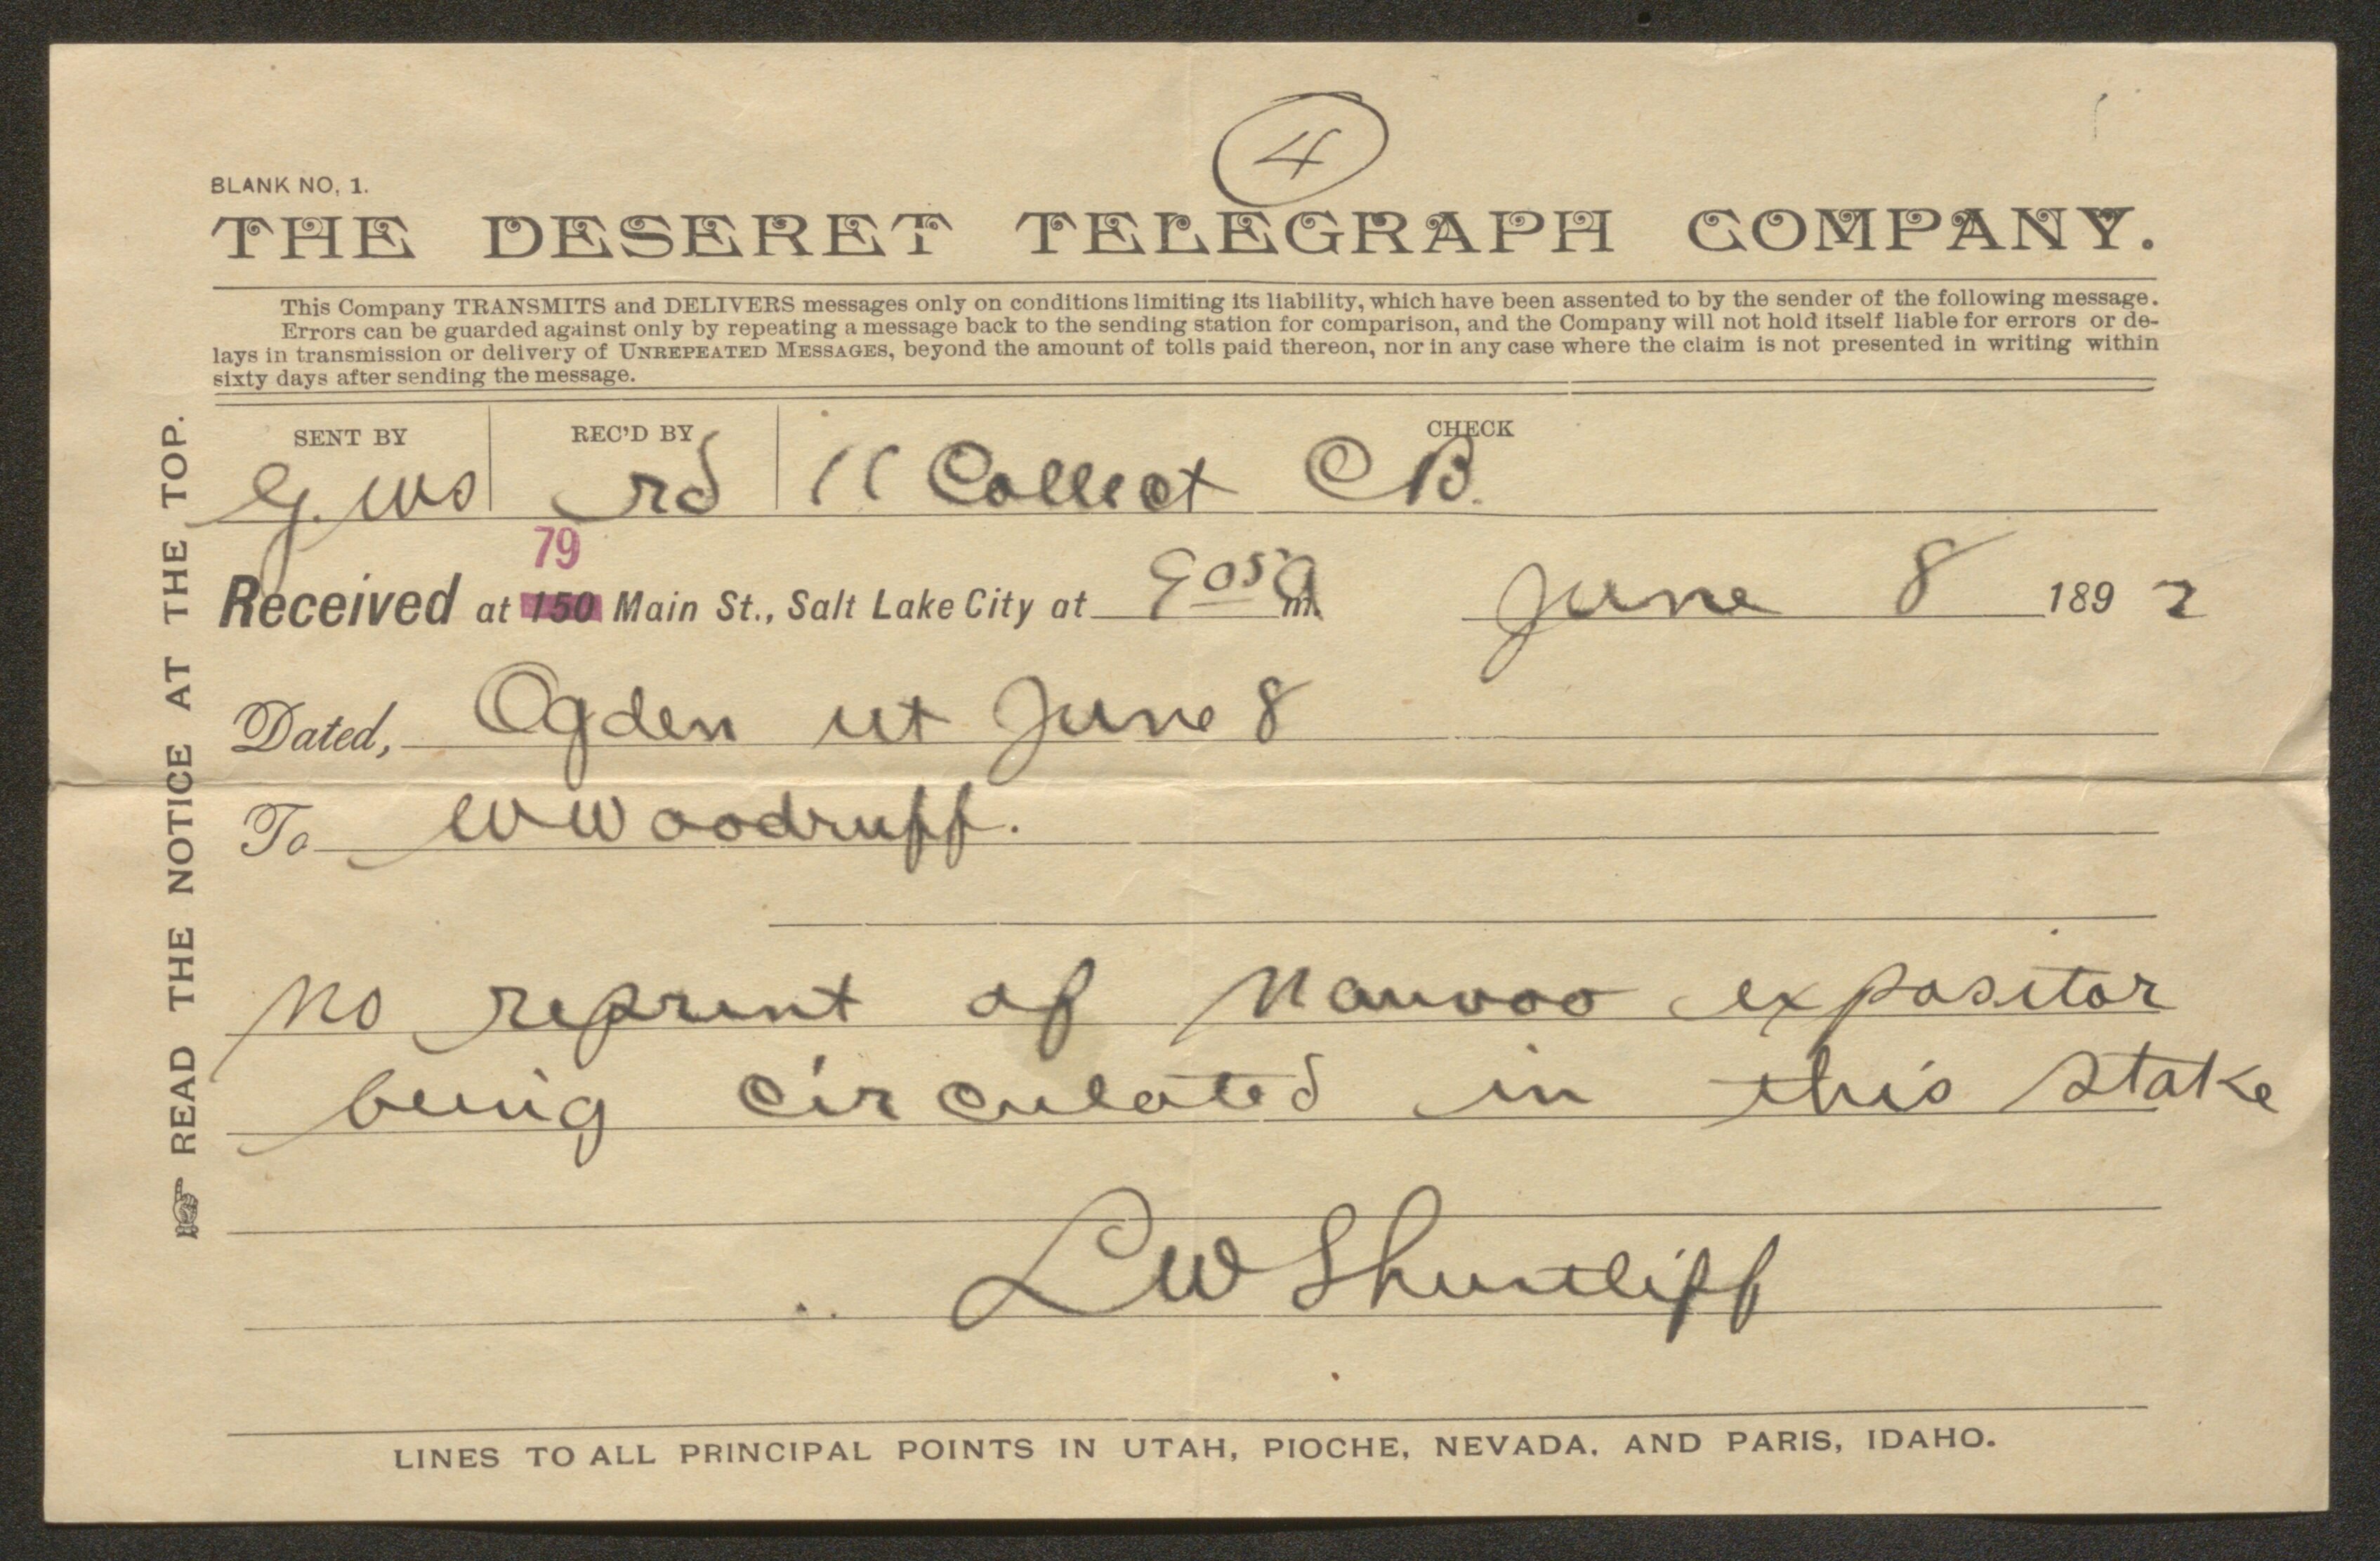 4
BLANK NO, 1.
THE DESERET TELEGRAPH COMPANY.
This Company TRANSMITS and DELIVERS messages only on conditions limiting its liability, which have been assented to by the sender of the following message.
Errors can be guarded against only by repeating a message back to the sending station for comparison, and the Company will not hold itself liable for errors or de-
lays in transmission or delivery of UNREPEATED MESSAGES, beyond the amount of tolls paid thereon, nor in any case where the claim is not presented in writing within
sixty days after sending the message.
SENT BY REC'D BY CHECK
rd 11 Collect CB.
79
Received at 150 Main St., Salt Lake City at 905 a m. June 8 1892
Dated, Ogden ut June 8
To W Woodruff.
No reprint of Nauvoo expositor
being circulated in this stake
L W Shurtliff
LINES TO ALL PRINCIPAL POINTS IN UTAH, PIOCHE, NEVADA, AND PARIS, IDAHO.
☞ READ THE NOTICE AT THE TOP.